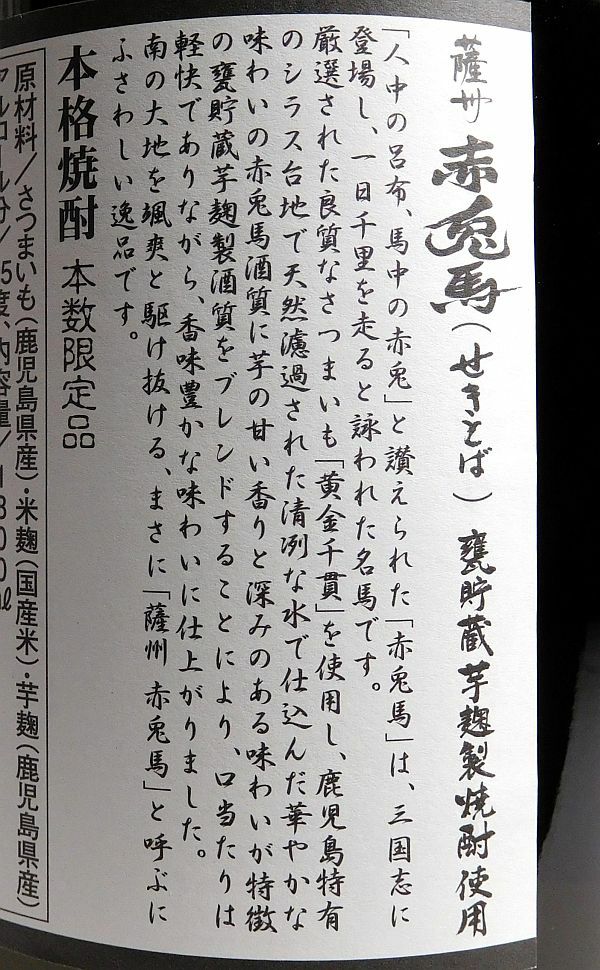 薩州 赤兎馬(せきとば) 甕貯蔵芋麹製焼酎使用
「人中の呂布、馬中の赤兎」と讃えられた「赤兎馬」は、三国志に
登場し、一日千里を走ると詠われた名馬です。
厳選された良質なさつまいも「黄金千貫」を使用し、鹿児島特有
のシラス台地で天然濾過された清冽な水で仕込んだ華やかな
味わいの赤兎馬酒質に芋の甘い香りと深みのある味わいが特徴
の甕貯蔵芋麹製酒質をブレンドすることにより、口当たりは
軽快でありながら、香味豊かな味わいに仕上がりました。
南の大地を颯爽と駆け抜ける、まさに「薩州 赤兎馬」と呼ぶに
ふさわしい逸品です。
本格焼酎 本数限定品
原材料/さつまいも(鹿児島県産)・米麹(国産米)・芋麹(鹿児島県産)
アルコール分/25度、内容量/1800ml